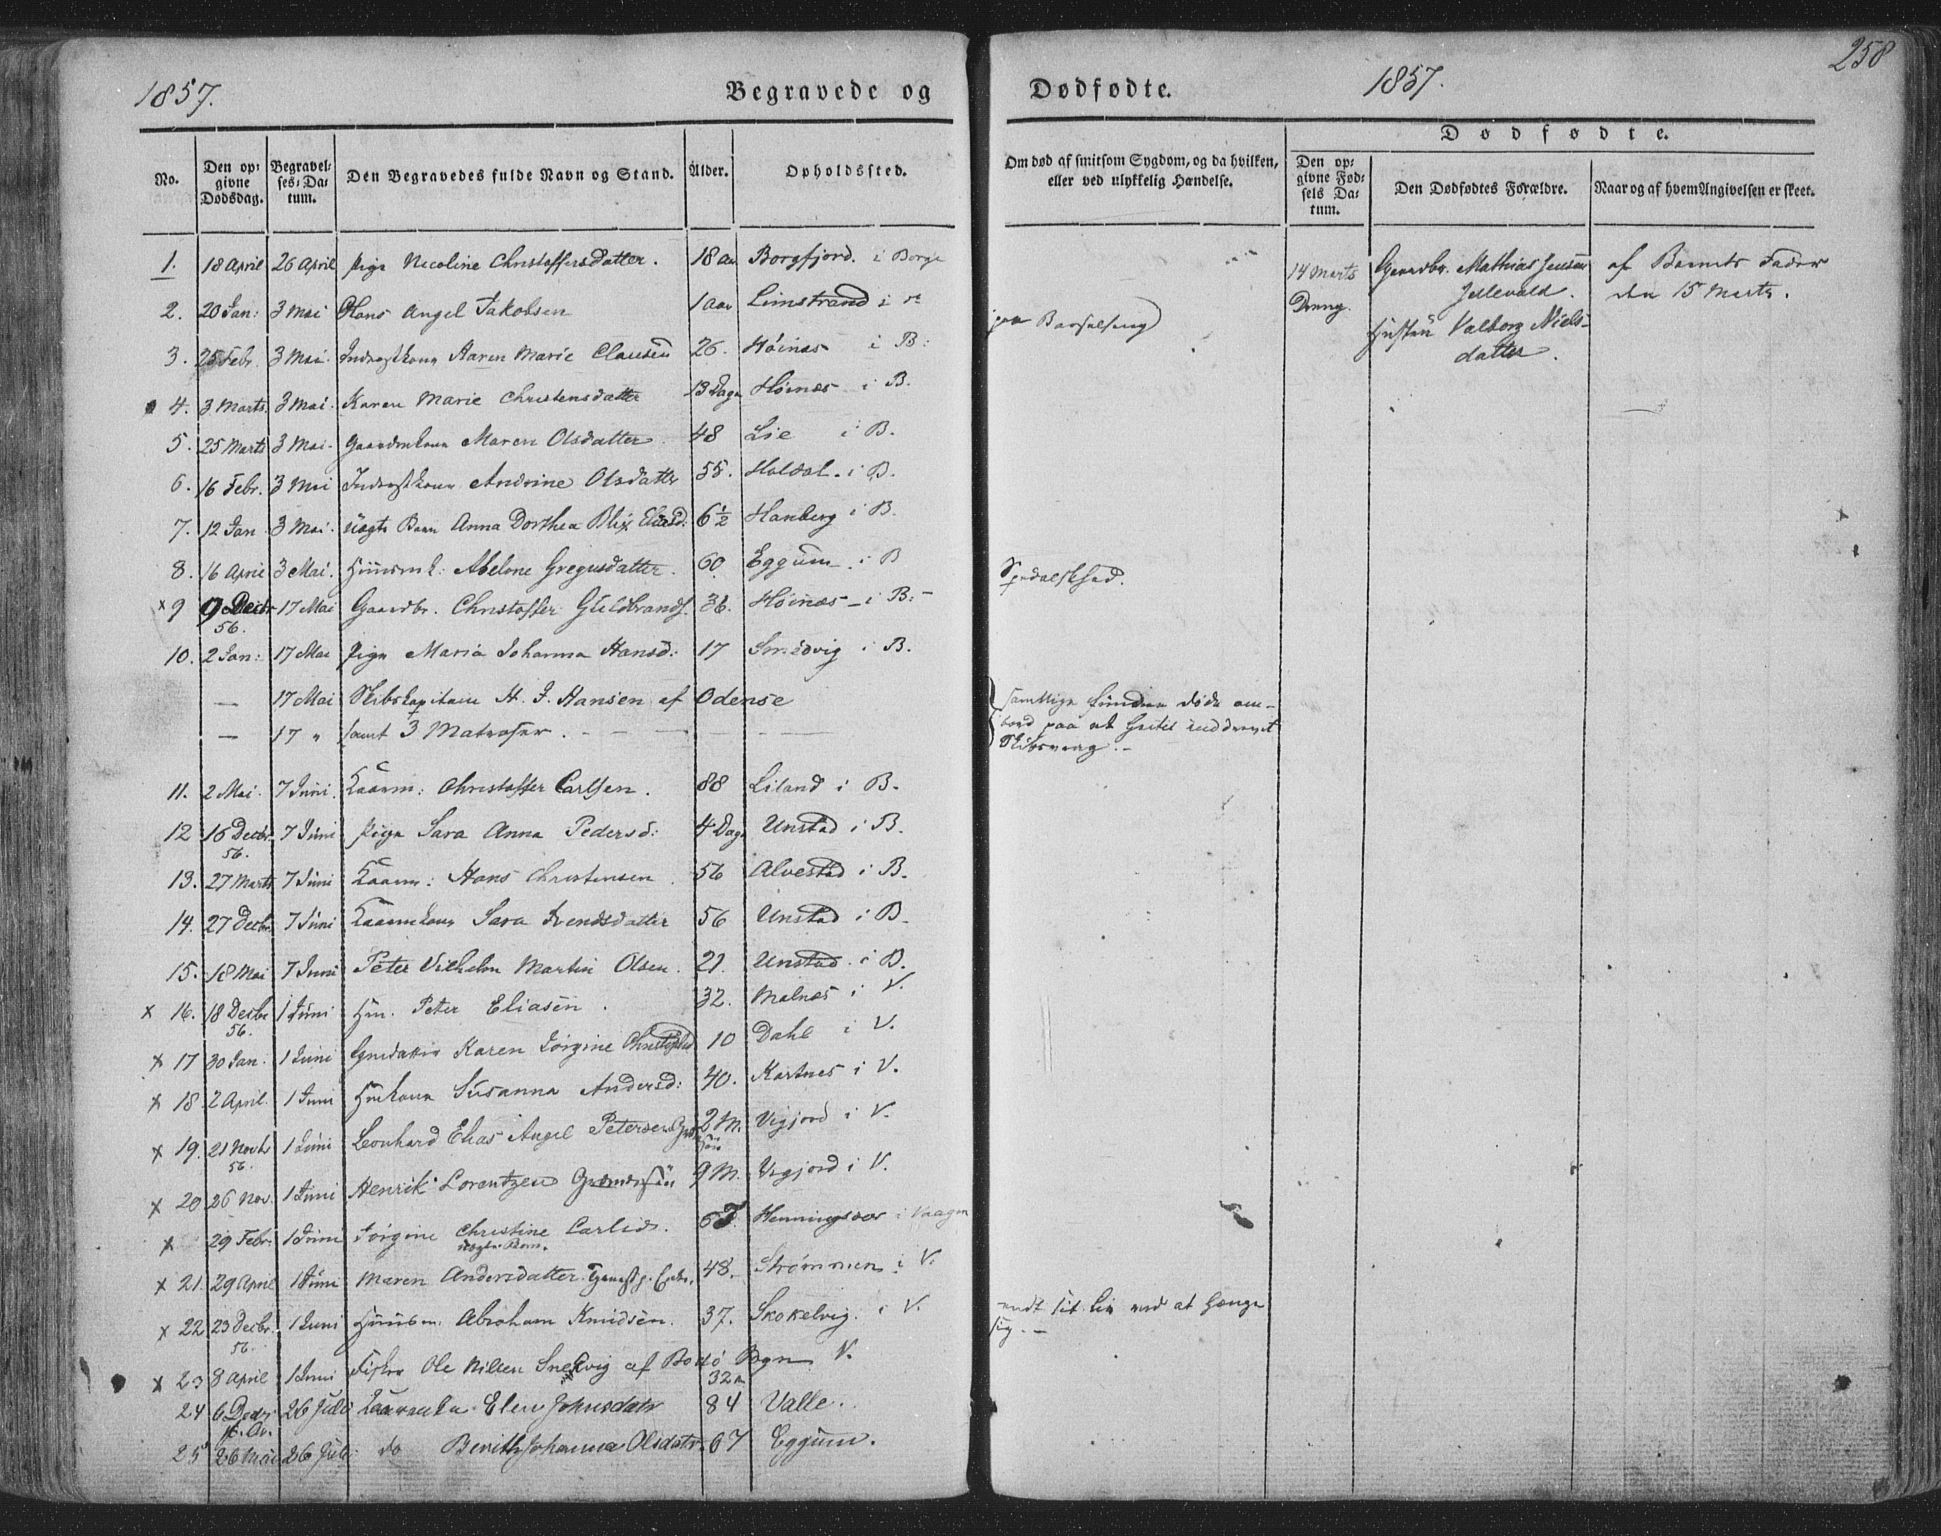 1857.
Begravede og
Dødfødte.
1857.
258
No.
Den opgivne Dødsdag.
Begravelses-Datum.
Den Begravedes fulde Navn og Stand.
Alder.
Opholdssted.
Om død af smitsom Sygdom, og da hvilken, eller ved ulykkelig Hændelse.
Dødfødte.
Den opgivne Fødsels Datum.
Den Dødfødtes Forældre.
Naar og af hvem Angivelsen er skeet.
1. 18 April 26 April Pige Nicoline Christoffersdatter. 18 aar Borgfjord. i Borge
2. 20 Jan: 3 Mai Hans Angel Jakobsen 1 aar Limstrand i
3. 25 Febr. 3 Mai. Karen Marie Clausen 26. Høinæs i B:
4. 3 Marts 3 Mai. Karen Marie Christensdatter 13 Dage Høinæs i B.
5. 25 Marts 3 Mai. Maren Olsdatter 48 Lie i B.
6. 16 Febr. 3 Mai Andrine Olsdatter 55. Holdal. i B.
7. 12 Jan 3 Mai. Barn Anna Dorthea Blix 6½ Hanberg i B.
8. 16 April 3 Mai. Abelone Gregusdatter. 60. Eggum. i B
Spedalskhed.
x 9 9 Decbr 56. 17 Mai Gaardbr. Christoffer 36. Høinæs i B:
10. 2 Jan: 17 Mai Pige Maria Johanna Hansd: 17 Smidvig i B.
— 17 Mai Skibskapitain H. J. Hansen af Odense
— 17 " samt 3 Matroser.
samtlige fundne døde om-
bord paa et hertil inddrevet
Skibsvrag.
11. 2 Mai. 7 Juni. Kaarm: Christoffer Carlsen. 88 Liland i B.
12 16 Decbr. 56. 7 Juni Pige Sara Anna Pedersd: 4 Dage Unstad i B.
13. 27 Marts 7 Juni Kaarm: Hans Christensen 56 Alvestad i B.
14. 27 Decbr. 7 Juni Sara 56 Unstad i B.
15. 18 Mai 7 Juni Peter Vilhelm Martin Olsen. 21. Unstad i B.
x 16. 18 Decbr 56. 1 Juni Peter Eliasen. 32. Malnæs i V.
x 17 30 Jan. 1 Juni Karen Jørgine 10 Dahl i V.
x 18. 2 April. 1 Juni Susanna Andersd: 40. Kartnes i V.
x 19. 21 Novbr 56. 1 Juni Leonhard Elias Angel Petersen 2 M. Vigjord i V.
x 20 26 Nov. 1 Juni Henrik Lorentzen 9 M. Vigjord i V.
x 29 Febr. 1 Juni Jørgine Christine Henningsvær i Vaagen
x 21. 29 April 1 Juni Maren Andersdatter. 48. Strømmen i V.
x 22 23 Decbr. 56. 1 Juni Abraham Knudsen. 37. Skokelvig. i V.
endt sit Liv ved at hænge
sig.
x 23 8 April 1 Juni Fisker Ole Nilsen af Bodø V.
32
24 6 Decbr 26 Juli Elen Johnsdatr 84 Valle.
25 26 Mai 26 Juli do Johanna Olsdatr. 67 Eggum.
14 Marts
Dreng.
Gaardbr. Mathias Jensen
Hustru Valborg Niels-
datter.
af Barnets Fader
den 15 Marts.